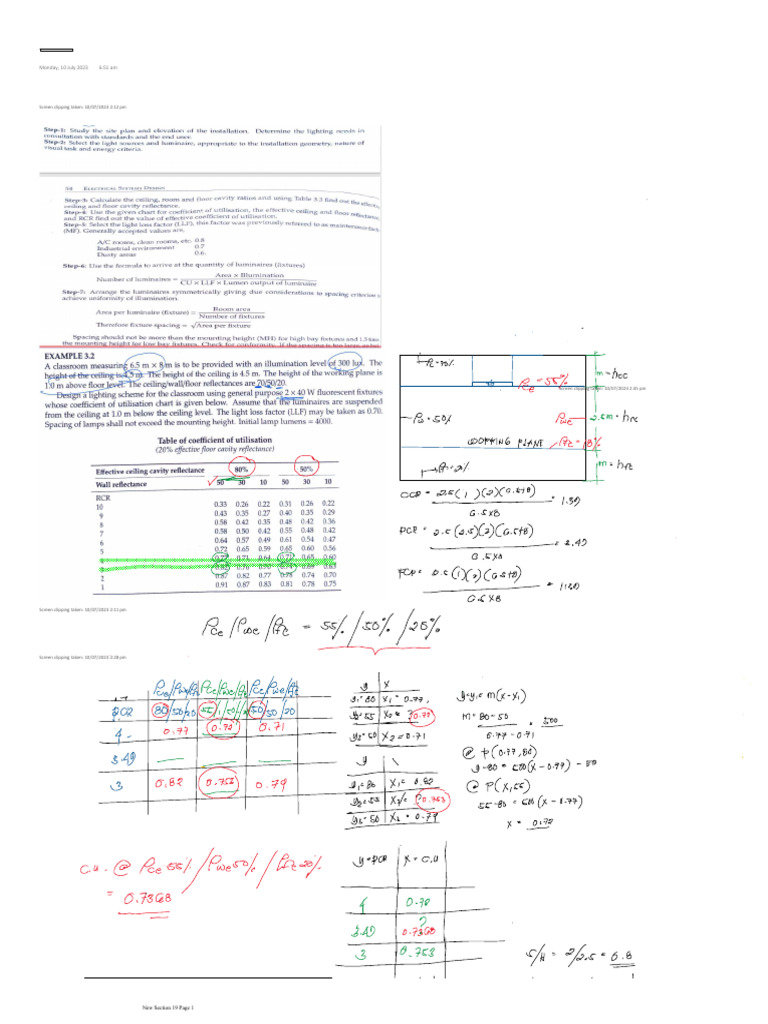 Monday, 10 July 2023 6:51 am
Screen clipping taken: 10/07/2023 2:12 pm
Step-1: Study the site plan and elevation of the installation. Determine the lighting needs in
consultation with standards and the end user.
Step-2: Select the light sources and luminaire, appropriate to the installation geometry, nature of
visual task and energy criteria.
58 ELECTRICAL SYSTEMS DESIGN
Step-3: Calculate the ceiling, room and floor cavity ratios and using Table 3.3 find out the effective
ceiling and floor cavity reflectance.
Step-4: Use the given chart for coefficient of utilisation, the effective ceiling and floor reflectance
and RCR find out the value of effective coefficient of utilisation.
Step-5: Select the light loss factor (LLF), this factor was previously referred to as maintenance fact
(MF). Generally accepted values are,
A/C rooms, clean rooms, etc. 0.8
Industrial environment 0.7
Dusty areas 0.6.
Step-6: Use the formula to arrive at the quantity of luminaires (fixtures)
Number of luminaires = Area × Illumination
CU × LLF × Lumen output of luminaire
Step-7: Arrange the luminaires symmetrically giving due considerations to spacing criterias
achieve uniformity of illumination.
Area per luminaire (fixture) = Room area
Number of fixtures
Therefore fixture spacing = √Area per fixture
Spacing should not be more than the mounting height (MH) for high bay fixtures and 1.5
the mounting height for low bay fixtures. Check for conformity. If the spacing is too large,
EXAMPLE 3.2
A classroom measuring 6.5 m × 8 m is to be provided with an illumination level of 300 lux. The
height of the ceiling is 4.5 m. The height of the ceiling is 4.5 m. The height of the working plane is
1.0 m above floor level. The ceiling/wall/floor reflectances are 70/50/20.
Design a lighting scheme for the classroom using general purpose 2 × 40 W fluorescent fixtures
whose coefficient of utilisation chart is given below. Assume that the luminaires are suspended
from the ceiling at 1.0 m below the ceiling level. The light loss factor (LLF) may be taken as 0.70.
Spacing of lamps shall not exceed the mounting height. Initial lamp lumens = 4000.
Table of coefficient of utilisation
(20% effective floor cavity reflectance)
Effective ceiling cavity reflectance 80% 50%
Wall reflectance 50 30 10 50 30 10
RCR
10 0.33 0.26 0.22 0.31 0.26 0.22
9 0.43 0.35 0.27 0.40 0.35 0.29
8 0.58 0.42 0.35 0.48 0.42 0.36
7 0.58 0.50 0.42 0.55 0.48 0.42
6 0.64 0.57 0.49 0.61 0.54 0.47
5 0.72 0.65 0.59 0.65 0.60 0.56
4 0.77 0.71 0.64 0.71 0.65 0.60
3 0.82 0.76 0.70 0.74 0.69 0.65
2 0.87 0.82 0.77 0.78 0.74 0.70
1 0.91 0.87 0.83 0.81 0.78 0.75
= 55%
Screen clipping taken: 10/07/2023 2:35 pm
= 50%
2.5m = hrc
WORKING PLANE
CCR = 2.5(1)(2)(6.5+8)
6.5x8
RCR = 2.5(2.5)(2)(6.5+8) = 3.49
6.5x8
6.5x8
Screen clipping taken: 10/07/2023 2:11 pm
Pce/Pwe/Pfc = 55%/50%/20%
Screen clipping taken: 10/07/2023 2:28 pm
80/50/20
50/50/20
4 0.77 0.72 0.71
3.49
3 0.82 0.753 0.79
y x
y1=80 x1=0.77
y2=55 x2=? 0.72
y3=50 x2=0.71
y1=80 x1=0.82
y3=50 x3=0.79
y-y1=m(x-x1)
m = 80-50 = 500
0.77-0.71
@ P(0.77,80)
@ P(x,55)
55-80 = 500(x-0.77)
x = 0.72
C.U. @ Pce 55%/Pwe 50%/Pfc 20%
= 0.7368
y=RCR x=C.U
4
3.49 0.7368
3 0.753
S/H = 2/2.5 = 0.8
New Section 19 Page 1